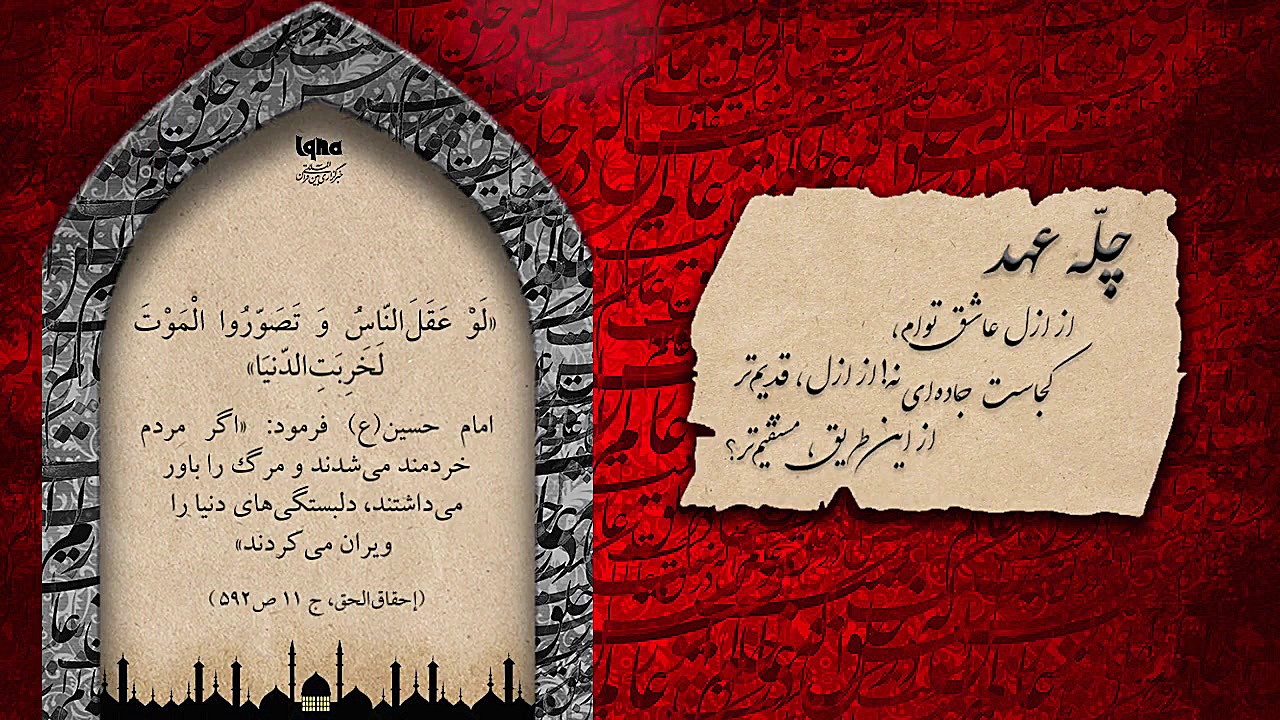 چلّه عهد
از ازل عاشق توام،
کجاست جاده‌ای نه! از ازل، قدیم‌تر
از این طریق، مستقیم‌تر؟
iqna
خبرگزاری بین‌المللی قرآن
«لَوْ عَقَلَ النّاسُ وَ تَصَوّرُوا الْمَوْتَ
لَخَرِبَتِ الدّنیَا»
امام حسین(ع) فرمود: «اگر مردم
خردمند می‌شدند و مرگ را باور
می‌داشتند، دلبستگی‌های دنیا را
ویران می‌کردند»
(إحقاق‌الحق، ج ۱۱ ص۵۹۲)